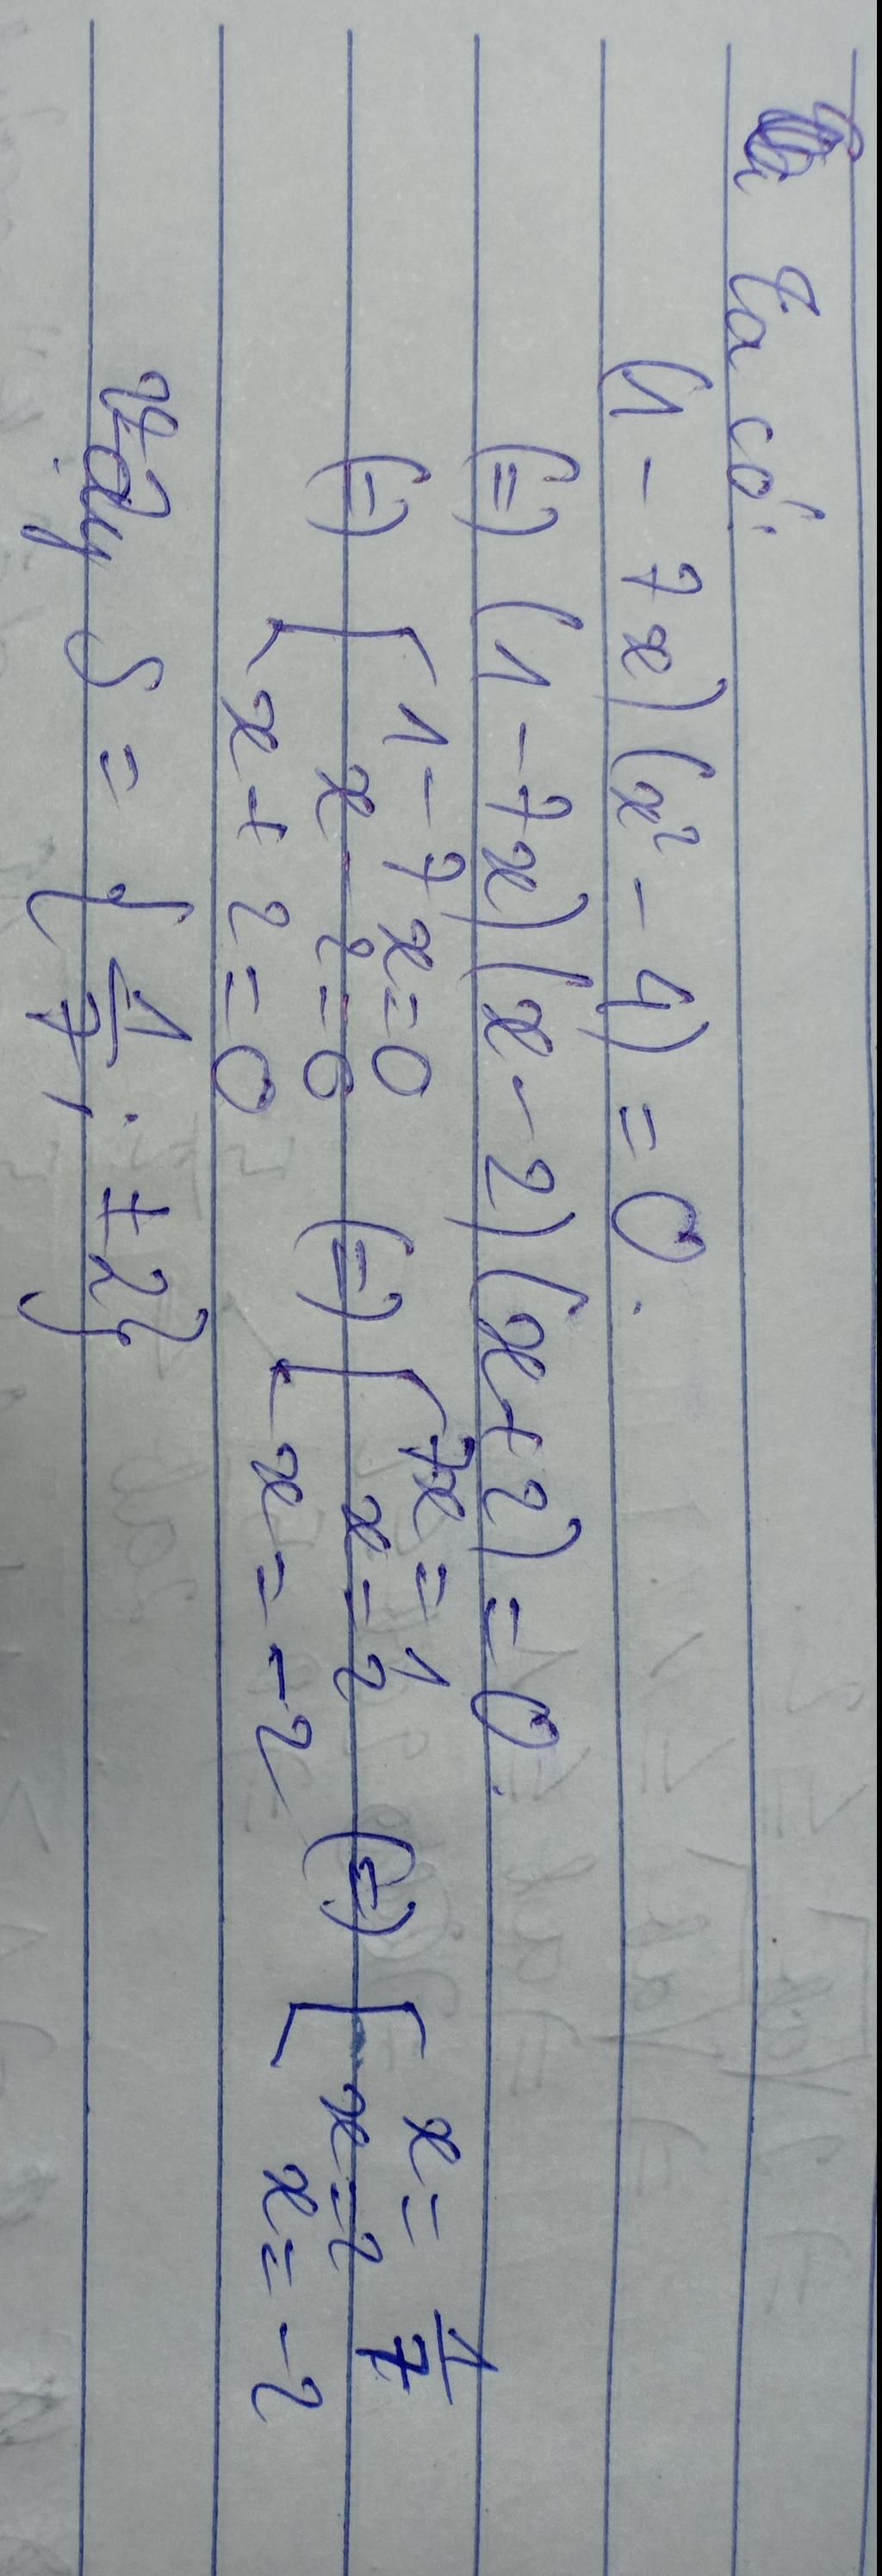 Ta có:
(1 - 7x)(x² - 4) = 0.
(=) (1 - 7x)(x - 2)(x + 2) = 0.
(=) [ 1 - 7x = 0 (=) [ 7x = 1 (=) [ x = 1/7
x - 2 = 0 x = 2 x = 2
x + 2 = 0 x = -2 x = -2
Vậy S = { 1/7 ; ± 2}